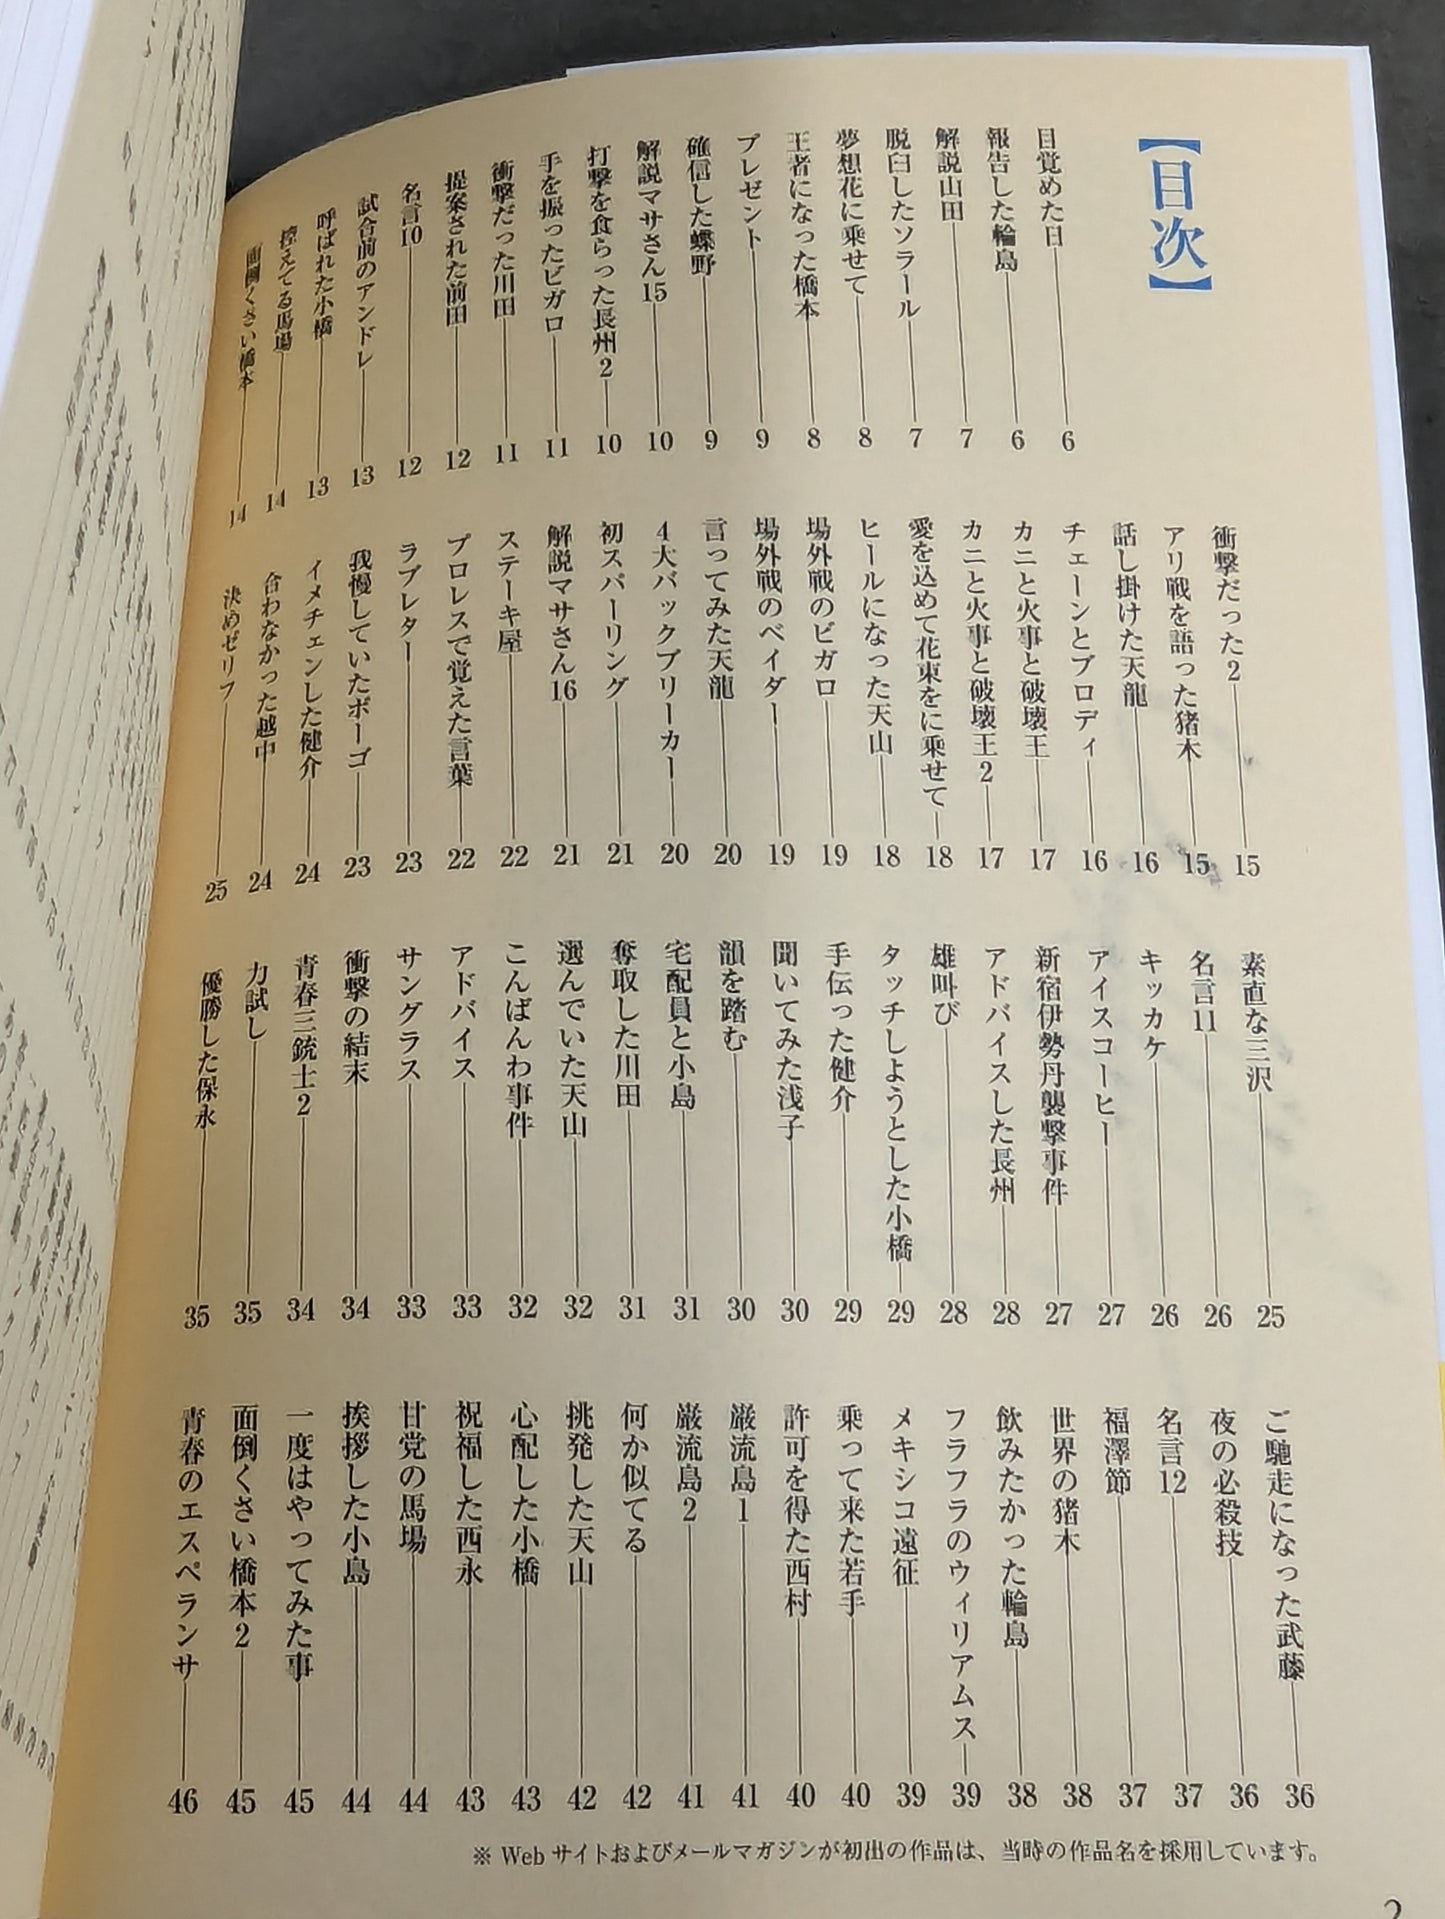 【目次】
目覚めた日――6
報告した輪島――6
解説山田――7
脱臼したソラール――7
夢想花に乗せて――8
王者になった橋本――8
プレゼント――9
確信した蝶野――9
解説マサさん15――10
打撃を食らった長州2――10
手を振ったビガロ――11
衝撃だった川田――11
提案された前田――12
名言10――12
試合前のアンドレ――13
呼ばれた小橋――13
控えてる馬場――14
面倒くさい橋本――14
衝撃だった2――15
アリ戦を語った猪木――15
話し掛けた天龍――16
チェーンとブロディ――16
カニと火事と破壊王――17
カニと火事と破壊王2――17
愛を込めて花束をに乗せて――18
ヒールになった天山――18
場外戦のビガロ――19
場外戦のベイダー――19
言ってみた天龍――20
4大バックブリーカー――20
初スパーリング――21
解説マサさん16――21
ステーキ屋――22
プロレスで覚えた言葉――22
ラブレター――23
我慢していたボーゴ――23
イメチェンした健介――24
合わなかった越中――24
決めゼリフ――25
素直な三沢――25
名言11――26
キッカケ――26
アイスコーヒー――27
新宿伊勢丹襲撃事件――27
アドバイスした長州――28
雄叫び――28
タッチしようとした小橋――29
手伝った健介――29
聞いてみた浅子――30
韻を踏む――30
宅配員と小島――31
奪取した川田――31
選んでいた天山――32
こんばんわ事件――32
アドバイス――33
サングラス――33
衝撃の結末――34
青春三銃士2――34
力試し――35
優勝した保永――35
ご馳走になった武藤――36
夜の必殺技――36
名言12――37
福澤節――37
世界の猪木――38
飲みたかった輪島――38
フラフラのウィリアムス――39
メキシコ遠征――39
乗って来た若手――40
許可を得た西村――40
巌流島1――41
巌流島2――41
何か似てる――42
挑発した天山――42
心配した小橋――43
祝福した西永――43
甘党の馬場――44
挨拶した小島――44
一度はやってみた事――45
面倒くさい橋本2――45
青春のエスペランサ――46
※ Webサイトおよびメールマガジンが初出の作品は、当時の作品名を採用しています。
2